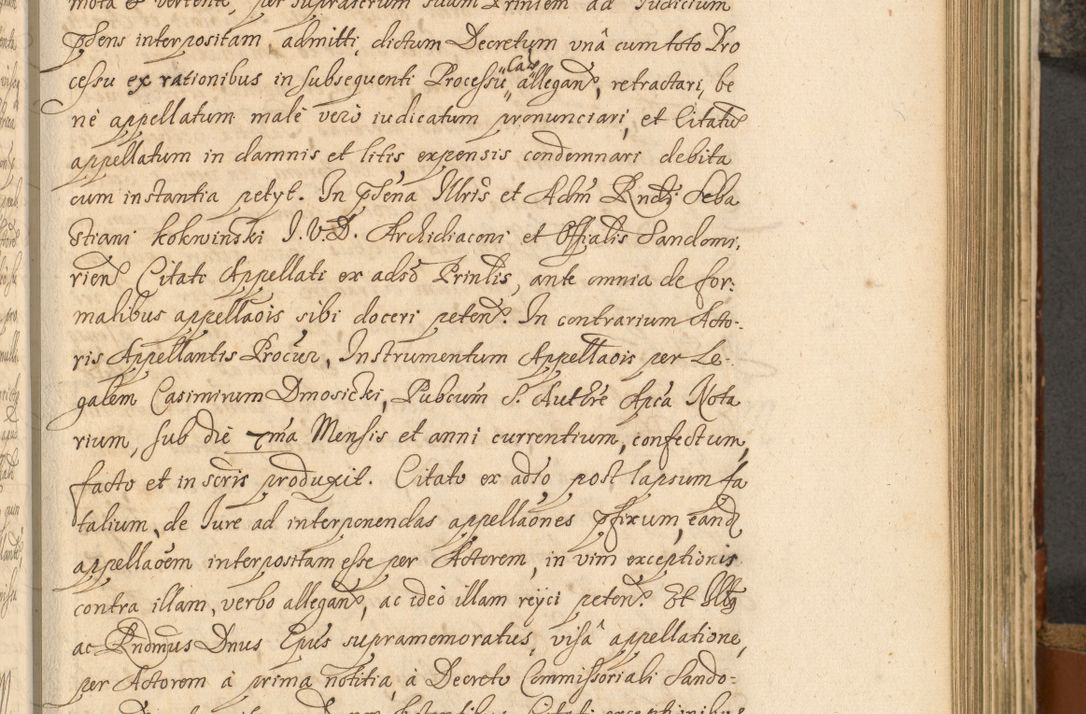 mota et vertente, per suprascrum suum Prinlem ad Iudicium
pñsens interpositam admitti, dictum Decretum vnâ cum toto Pro
cessu ex rationibus in subsequenti Processu Cau allegañ, retractari, be
nè appellatum malè verò iudicatum pronunciari, et Citatũ
appellatum in damnis et litis expensis condemnari debita
cum instantia petyt. In pñsena Illris et Adm Rndi Seba
stiani Kokwinski I.V.D. Archidiaconi et Offialis Sandomi,
rieñ Citati Appellati ex adsõ Prinlis, ante omnia de for:
malibus appellaois sibi doceri peteñ. In contrarium Acto-
ris Appellantis Procur, Instrumentum Appellaois per Le-
galem Casimirum Dmosicki, Pubcum S. Authre Apca Nota
rium, sub die 7ma Mensis et anni currentium, confectum,
facto et in scris produxit. Citato ex adso post lapsum fa
talium, de Iure ad interponendas appellaones pfixum, eand
appellaoem interpositam esse per Actorem, in vim exceptionis
contra illam, verbo allegañ, ac ideò illam reyci peteñ. Et Illus
ac Rndmus Dnus Epus supramemoratus, visâ appellatione,
per Actorem à prima notitia, à Decreto Commissoriali Sando-